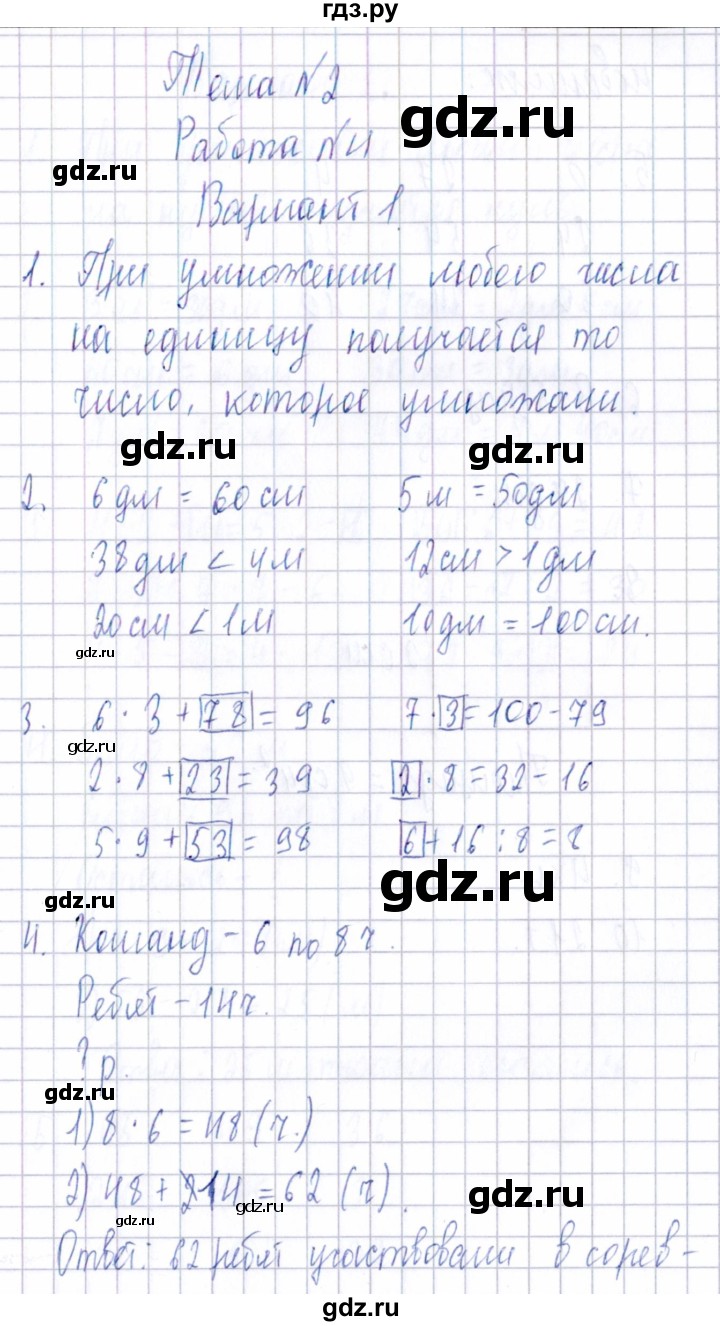 гдз.ру
Тема №2
gdz.ru
Работа №4
gdz.ru
Вариант 1.
1. При умножении любого числа
на единицу получается то
число, которое умножали.
gdz.ru gdz.ru
2. 6 дм = 60 см 5 м = 50 дм
38 дм < 4 м 12 см > 1 дм
20 см < 1 м 10 дм = 100 см.
gdz.ru
3. 6 · 3 + 78 = 96 7 · 3 = 100 - 79
gdz.ru
2 · 8 + 23 = 39 2 · 8 = 32 - 16
5 · 9 + 53 = 98 6 + 16 : 8 = 8
gdz.ru gdz.ru
4. Команд - 6 по 8 ч.
Ребят - 14 ч.
? р.
gdz.ru
1) 8 · 6 = 48 (ч.)
2) 48 + 14 = 62 (ч).
gdz.ru gdz.ru gdz.ru
Ответ: 62 ребят участвовали в сорев-
gdz.ru